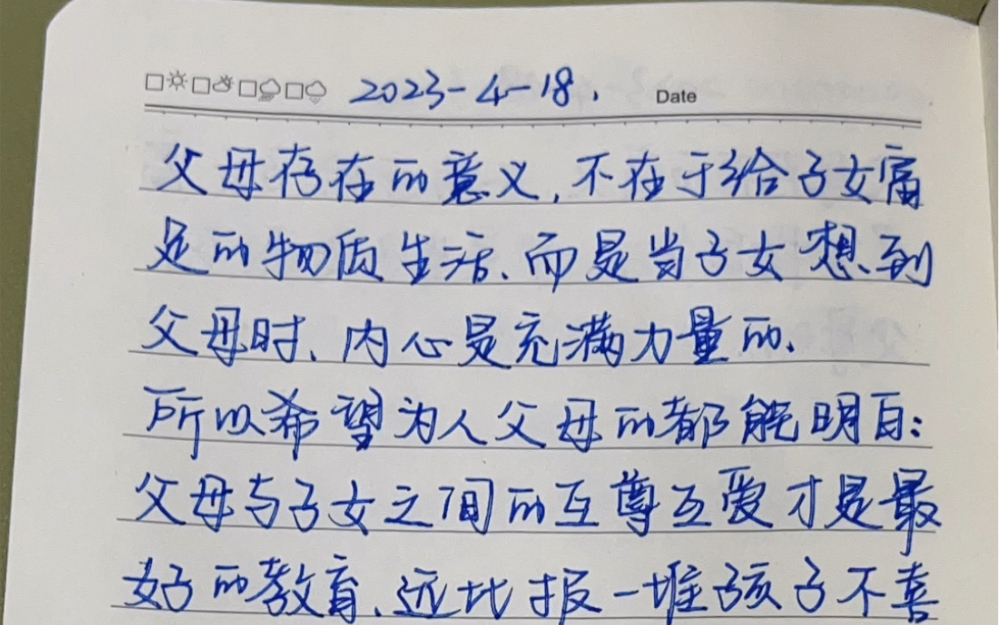 2023-4-18. Date
父母存在的意义,不在于给子女富
足的物质生活、而是当子女想到
父母时、内心是充满力量的.
所以希望为人父母的都能明白:
父母与子女之间的互尊互爱才是最
好的教育、远比报一堆孩子不喜